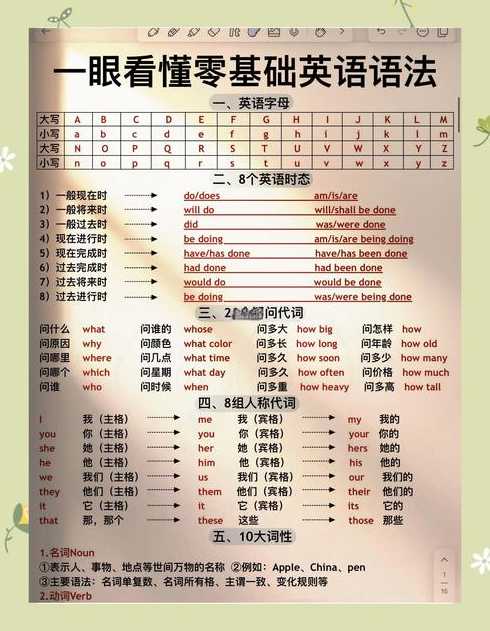 一眼看懂零基础英语语法
一、英语字母
大写 A B C D E F G H I J K L M
小写 a b c d e f g h i j k l m
大写 N O P Q R S T U V W X Y Z
小写 n o p q r s t u v w x y z
二、8个英语时态
1）一般现在时 do/does am/is/are
2）一般将来时 will do will/shall be done
3）一般过去时 did was/were done
4）现在进行时 be doing am/is/are being doing
5）现在完成时 have/has done have/has been done
6）过去完成时 had done had been done
7）过去将来时 would do would be done
8）过去进行时 be doing was/were being done
三、2 问代词
问什么 what 问谁的 whose 问多大 how big 问怎样 how
问原因 why 问颜色 what color 问多长 how long 问年龄 how old
问哪里 where 问几点 what time 问多久 how soon 问多少 how many
问哪个 which 问星期 what day 问多久 how often 问价格 how much
问谁 who 问时候 when 问多重 how heavy 问多高 how tall
四、8组人称代词
I 我（主格） me 我（宾格） my 我的
you 你（主格） you 你（宾格） your 你的
she 她（主格） her 她（宾格） hers 她的
he 他（主格） him 他（宾格） his 他的
we 我们（主格） us 我们（宾格） our 我们的
they 他们（主格） them 他们（宾格） their 他们的
it 它（主格） it 它（宾格） its 它的
that 那，那个 these 这些 those 那些
五、10大词性
1.名词Noun
①表示人、事物、地点等世间万物的名称 ②例如：Apple、China、pen
③主要语法：名词单复数、名词所有格、主谓一致、变化规则等
2.动词Verb
1
16